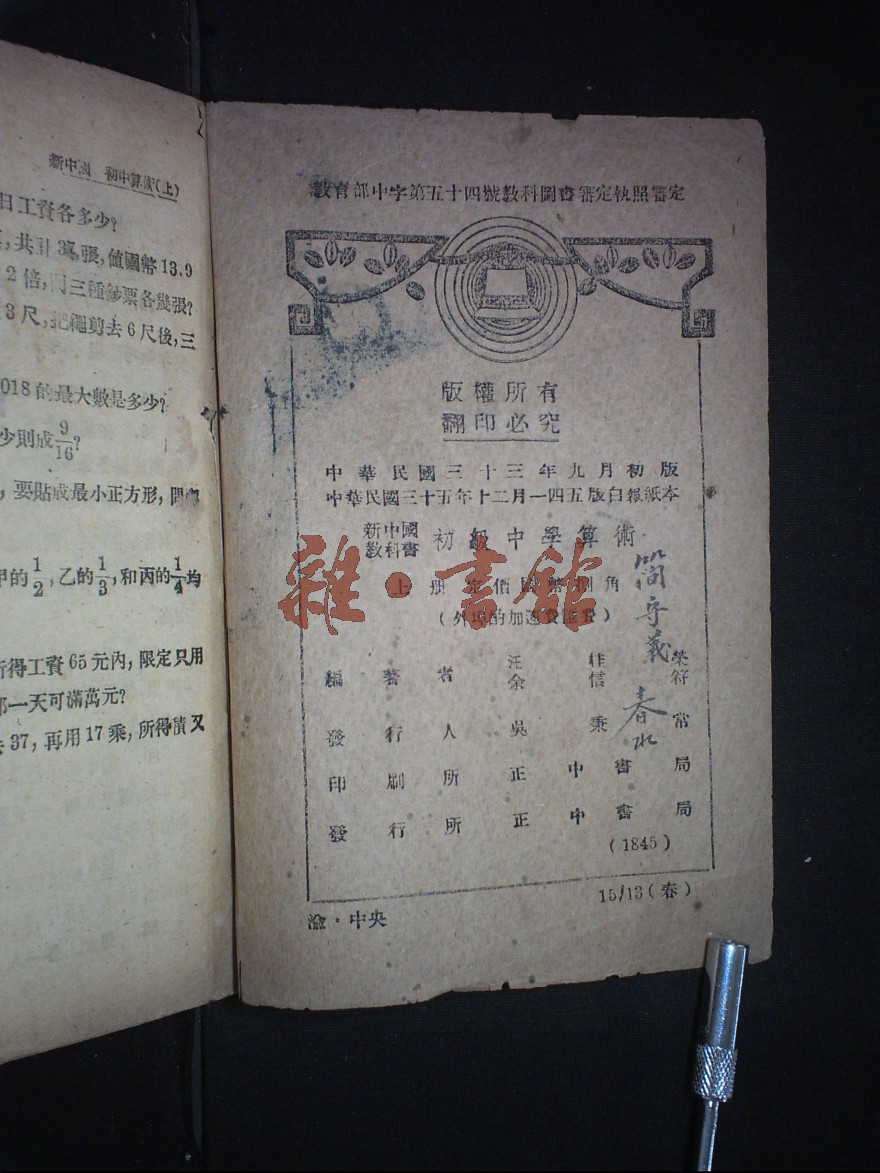 新中國 初中算術(上)
日工資各多少?
共計 張, 値國幣 13.9
2 倍, 問三種參票各幾張?
3 尺, 把繩剪去 6 尺後, 三
018 的最大數是多少?
少則成 9/16?
, 要貼成最小正方形, 問
甲的 1/2, 乙的 1/3, 和丙的 1/4 均
所得工資 65 元內, 限定只用
那一天可滿萬元?
去 37, 再用 17 乘, 所得積又
教育部中字第五十四號教科圖書審定執照審定
版權所有
翻印必究
中華民國三十三年九月初版
中華民國三十五年十二月一四五版白報紙本
新中國教科書 初級中學算術
上册定價國幣捌角
(外埠酌加運費匯費)
編著者 汪桂榮 余信符
發行人 吳秉常
印刷所 正中書局
發行所 正中書局
(1845)
15/13(春)
渝·中央
簡守義
春水
雜·書館